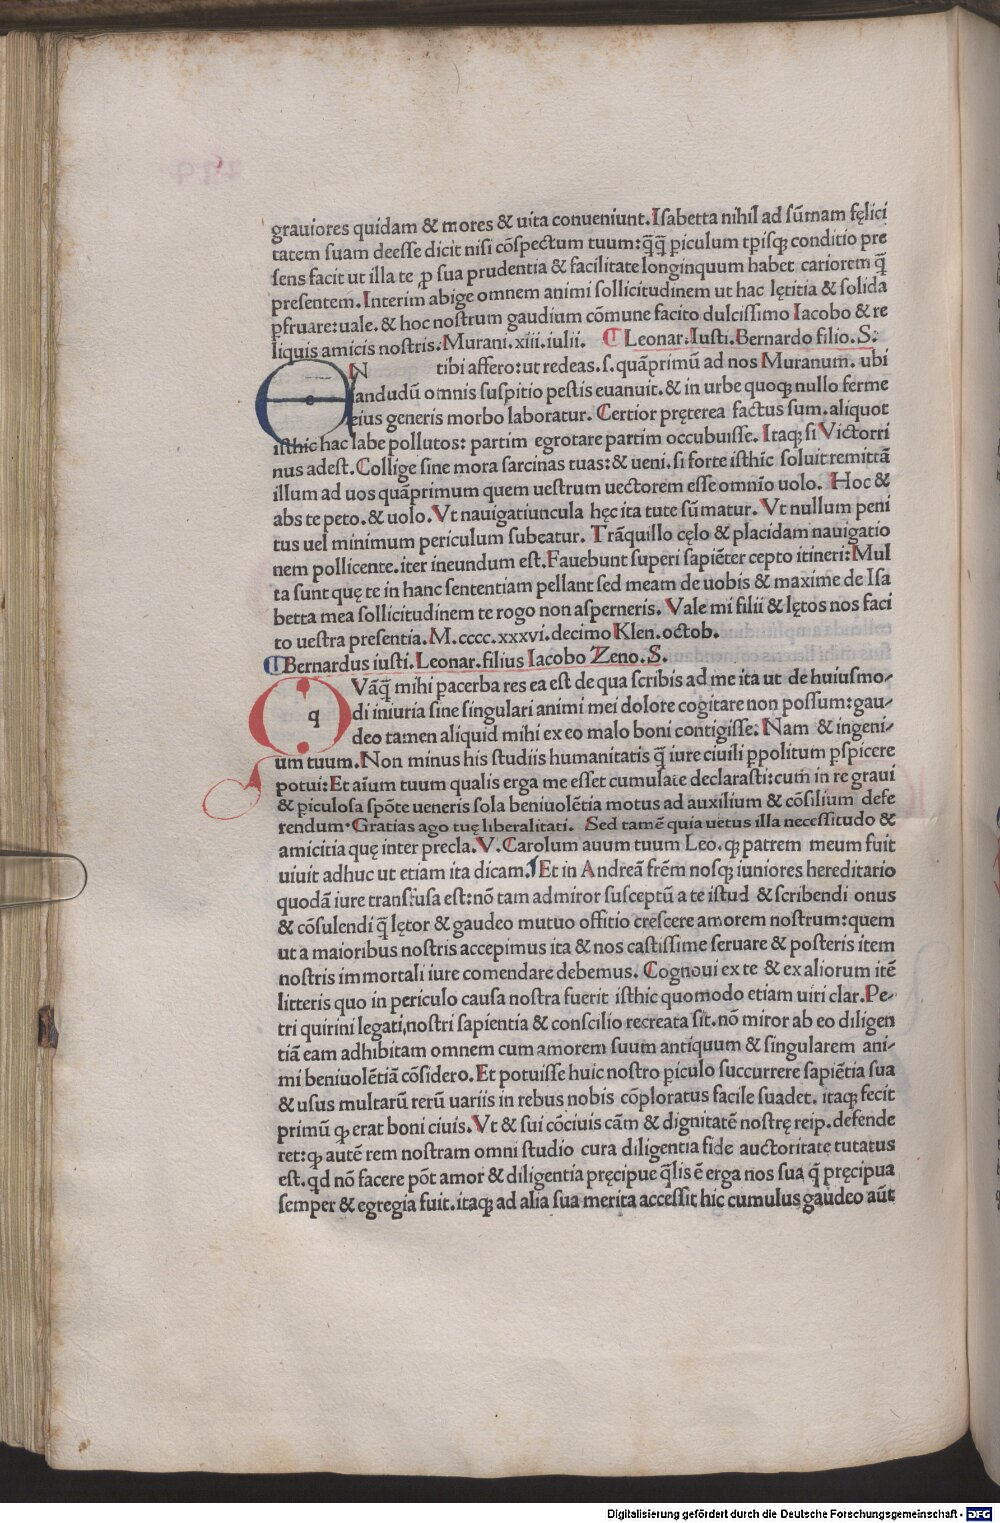 grauiores quidam & mores & uita conueniunt. Isabetta nihil ad sūmam fęlici
tatem suam deesse dicit nisi cōspectum tuum: q̄q̄ piculum tpisq; conditio pre
sens facit ut illa te ꝓ sua prudentia & facilitate longinquum habet cariorem q̄
presentem. Interim abige omnem animi sollicitudinem ut hac lętitia & solida
pfruare: uale. & hoc nostrum gaudium cōmune facito dulcissimo Iacobo & re
liquis amicis nostris. Murani. xiii. iulii. ¶ Leonar. Iusti. Bernardo filio. S:
e N tibi affero: ut redeas. s. quāprimū ad nos Muranum. ubi
iandudū omnis suspitio pestis euanuit. & in urbe quoq; nullo ferme
eius generis morbo laboratur. Certior pręterea factus sum. aliquot
isthic hac labe pollutos: partim egrotare partim occubuisse. Itaq; si Victorri
nus adest. Collige sine mora sarcinas tuas: & ueni. si forte isthic soluit remittā
illum ad uos quāprimum quem uestrum uectorem esse omnīo uolo. Hoc &
abs te peto. & uolo. Vt nauigatiuncula hęc ita tute sūmatur. Vt nullum peni
tus uel minimum periculum subeatur. Trāquillo cęlo & placidam nauigatio
nem pollicente. iter ineundum est. Fauebunt superi sapiēter cepto itineri: Mul
ta sunt quę te in hanc sententiam pellant sed meam de uobis & maxime de Isa
betta mea sollicitudinem te rogo non asperneris. Vale mi filii & lętos nos faci
to uestra presentia. M. cccc. xxxvi. decimo Klen. octob.
¶ Bernardus iusti. Leonar. filius Iacobo Zeno. S.
q Vāq̄ mihi pacerba res ea est de qua scribis ad me ita ut de huiusmo-
di iniuria sine singulari animi mei dolote cogitare non possum: gau-
deo tamen aliquid mihi ex eo malo boni contigisse: Nam & ingeni-
um tuum. Non minus his studiis humanitatis q̄ iure ciuili ppolitum pspicere
potui: Et aīum tuum qualis erga me esset cumulate declarasti: cum in re graui
& piculosa spōte ueneris sola beniuolētia motus ad auxilium & cōsilium defe
rendum. Gratias ago tuę liberalitati. Sed tamē quia uetus illa necessitudo &
amicitia quę inter precla. V. Carolum auum tuum Leo. q; patrem meum fuit
uiuit adhuc ut etiam ita dicam. Et in Andreā frēm nosq; iuniores hereditario
quodā iure transfusa est: nō tam admiror susceptū a te istud & scribendi onus
& cōsulendi q̄ lętor & gaudeo mutuo offitio crescere amorem nostrum: quem
ut a maioribus nostris accepimus ita & nos castissime seruare & posteris item
nostris immortali iure comendare debemus. Cognoui ex te & ex aliorum itē
litteris quo in periculo causa nostra fuerit isthic quomodo etiam uiri clar. Pe-
tri quirini legati, nostri sapientia & conscilio recreata sit. nō miror ab eo diligen
tiā eam adhibitam omnem cum amorem suum antiquum & singularem ani-
mi beniuolētiā cōsidero. Et potuisse huic nostro piculo succurrere sapiētia sua
& usus multarū rerū uariis in rebus nobis cōploratus facile suadet. itaq; fecit
primū ꝙ erat boni ciuis. Vt & sui cōciuis cām & dignitatē nostrę reip. defende
ret: ꝙ autē rem nostram omni studio cura diligentia fide auctoritate tutatus
est. qd nō facere pōt amor & diligentia pręcipue q̄lis ē erga nos sua q̄ pręcipua
semper & egregia fuit. itaq; ad alia sua merita accessit hic cumulus gaudeo aūt
Digitalisierung gefördert durch die Deutsche Forschungsgemeinschaft - DFG